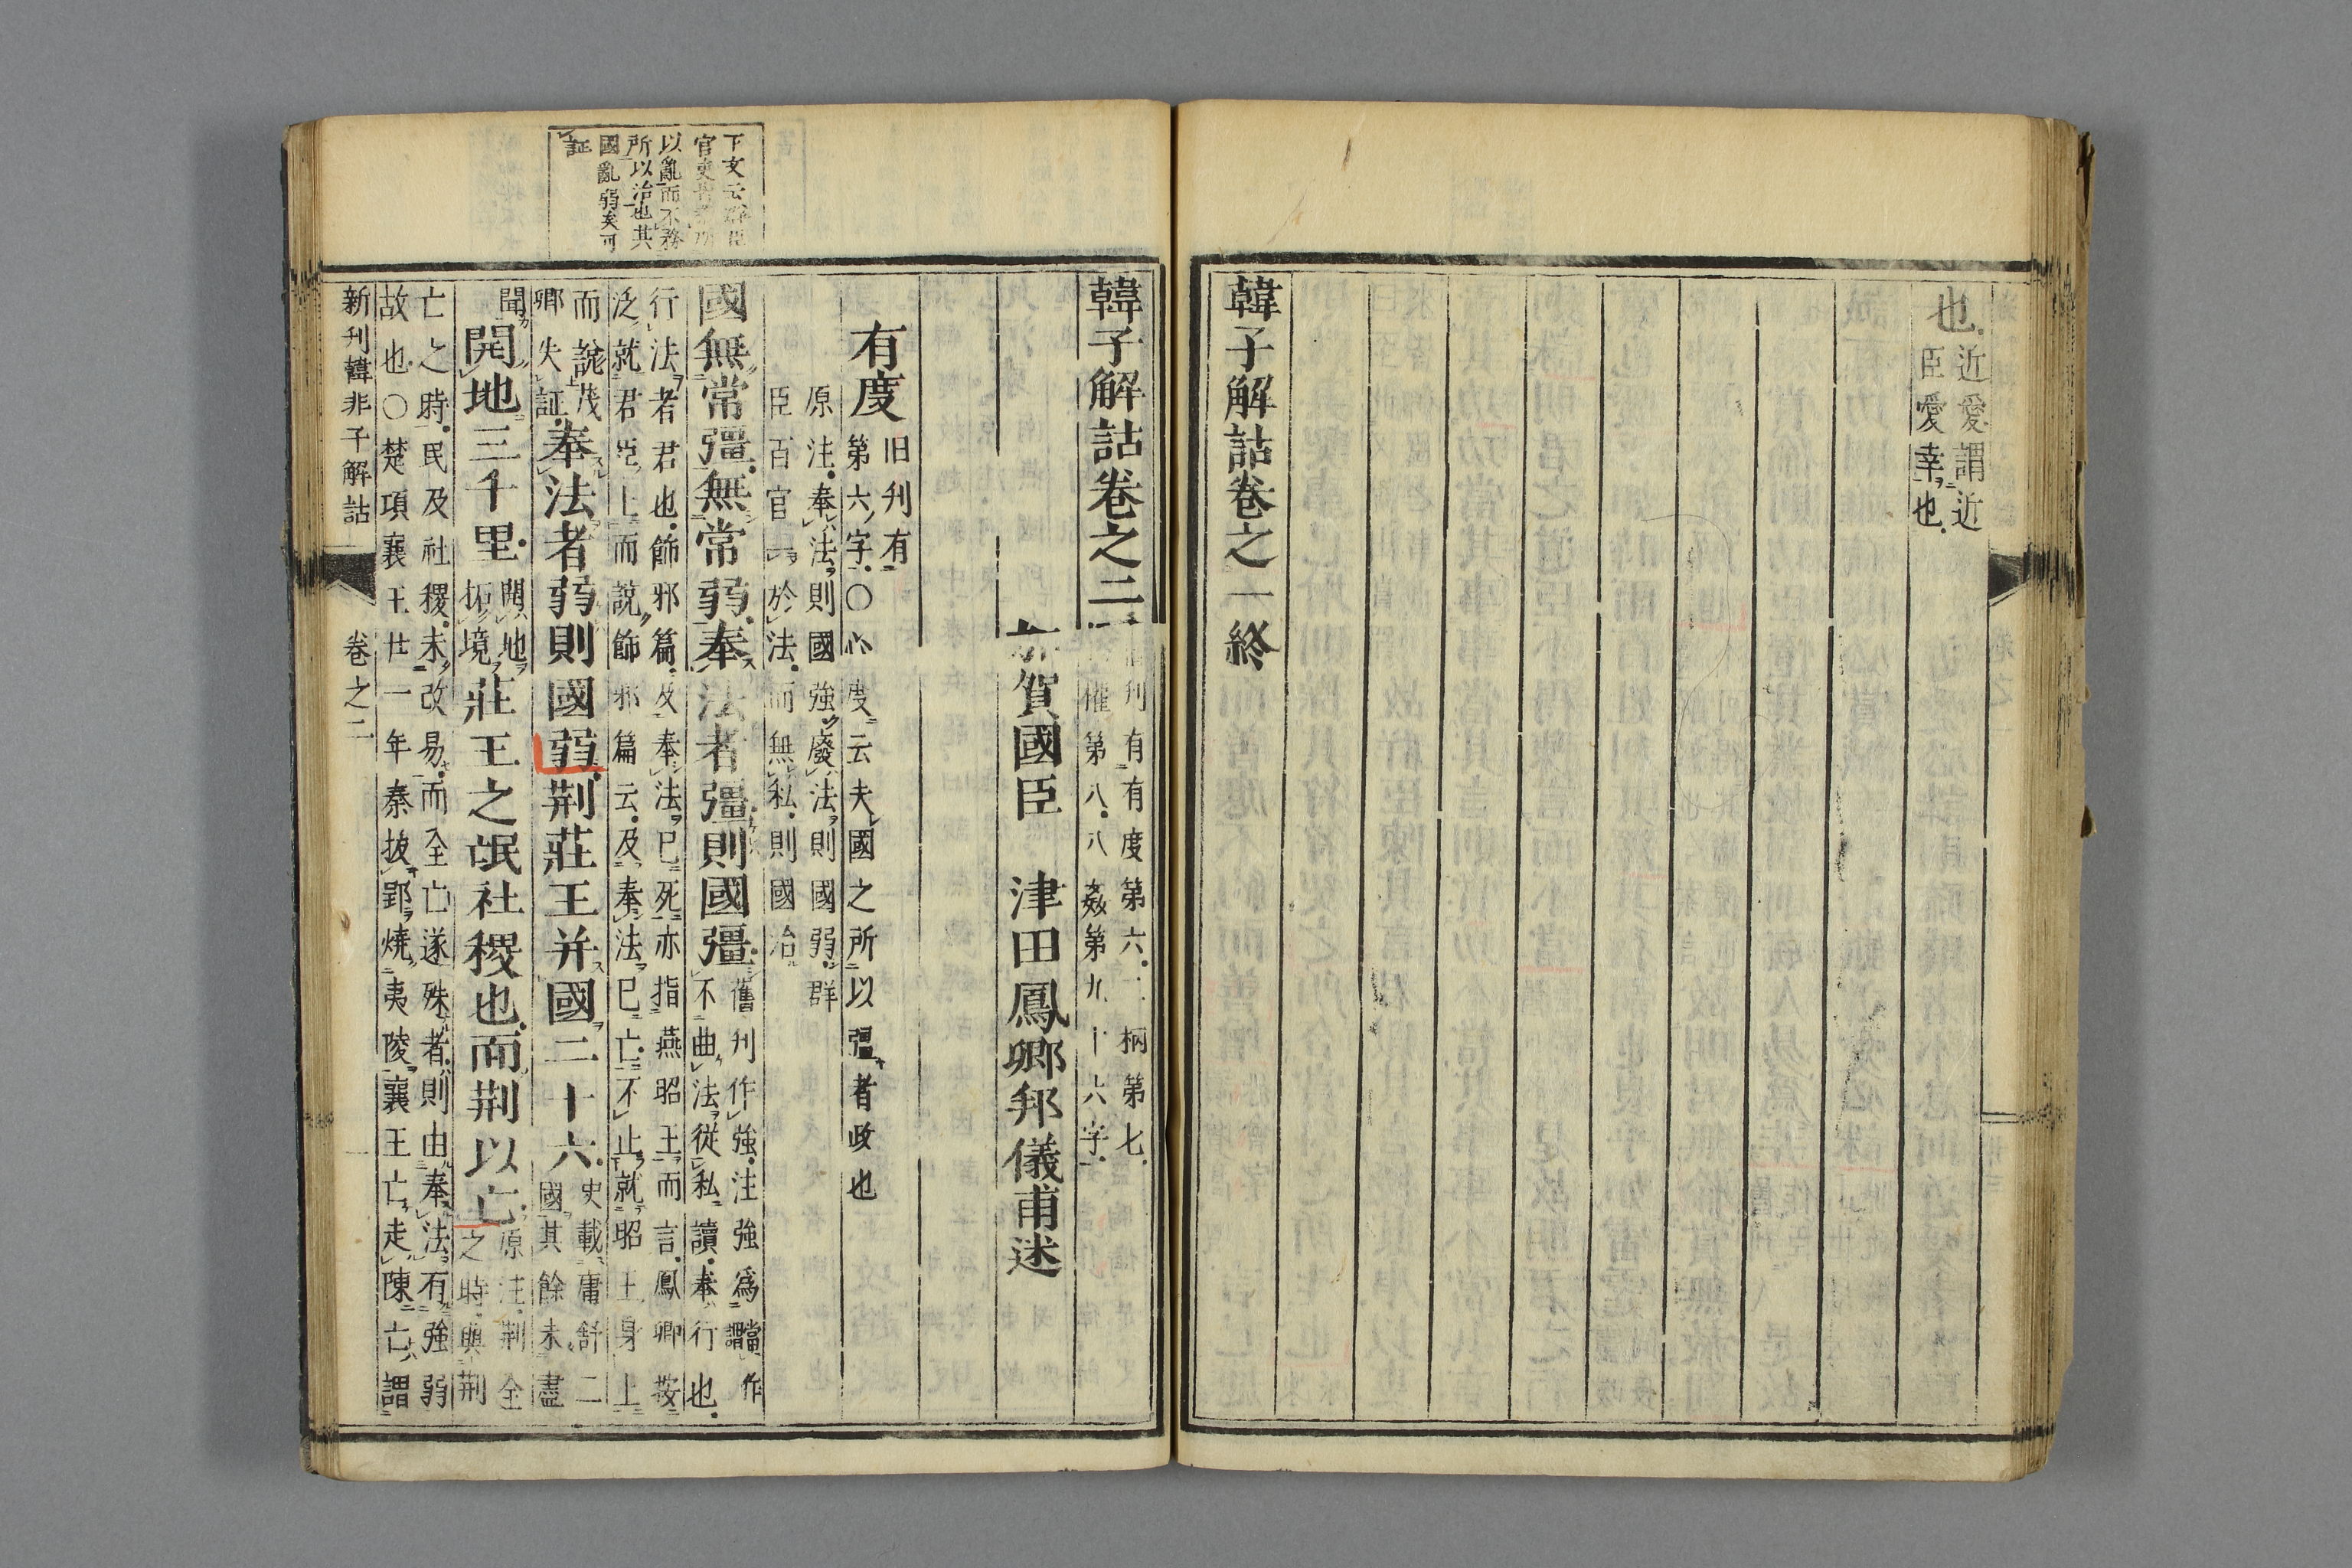 也近愛謂近
臣愛幸也
韓子解詁卷之一終
韓子解詁卷之二
刊有有度第六二柄第七
權第八八姦第九十六字
賀國臣 津田鳳卿邦儀甫述
有度旧刋有
第六字〇心度云夫國之所以彊者政也
原注奉法則國強廢法則國弱群
臣百官於法而無私則國治
國無常彊無常弱奉法者彊則國彊舊刋作強注強爲當作
不曲法從私讀奉行也
行法者君也飾邪篇及奉法已死亦指燕昭王而言鳳卿按
泛就君臣上而說飾邪篇云及奉法已亡不止就昭王身上
而說茂
卿失証奉法者弱則國弱荆莊王并國二十六史載庸舒二
國其餘未盡
聞開地三千里開地
拓境莊王之氓社稷也而荆以亡原注荆全
之時與荆
亡之時民及社稷未改易而全亡遂殊者則由奉法有強弱
故也〇楚項襄王廿一年秦拔郢燒夷陵襄王亡走陳亡謂
下文云
官吏
以亂而不務
所以治也其
國亂弱矣可
証
新刋韓非子解詁 卷之二 一